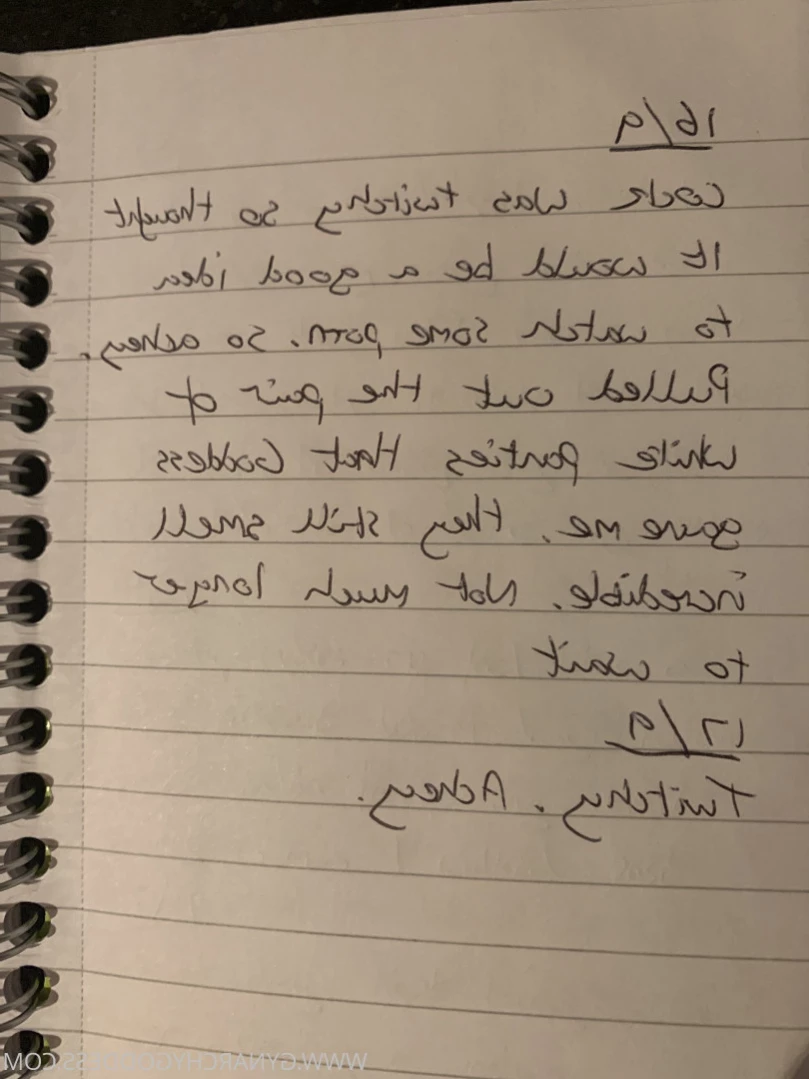 16/9
cock was twitchy so thought
it would be a good idea
to watch some porn. So achey.
Pulled out the pair of
white panties that Goddess
gave me. they still smell
incredible. Not much longer
to wait
17/9
Twitchy. Achey.
WWW.GYNARCHYGODDESS.COM